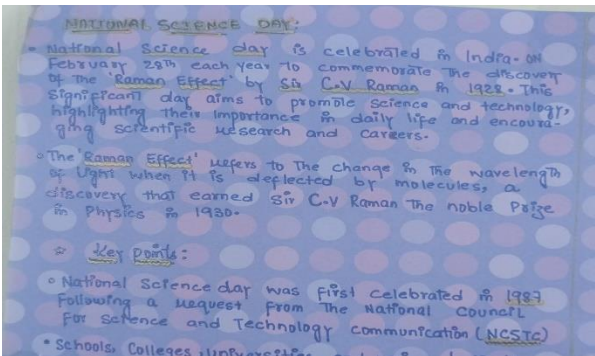 NATIONAL SCIENCE DAY:
• National Science day is celebrated in India. ON
February 28th each year to commemorate The discovery
of The 'Raman Effect' by Sir C.V Raman in 1928. This
significant day aims to promote science and technology,
highlighting their importance in daily life and encoura-
ging scientific research and careers.
• The 'Raman Effect' refers to The change in The wavelength
of Light when it is deflected by molecules, a
discovery that earned Sir C.V Raman The noble Prize
in Physics in 1930.
☆ Key points:
• National Science day was first celebrated in 1987
Following a request From The National Council
For Science and Technology communication (NCSTC)
• Schools, Colleges, Universities